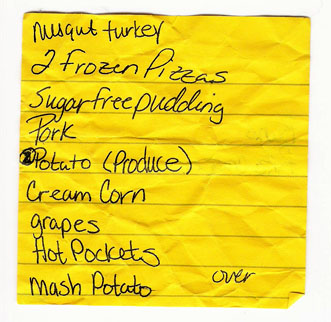 nusqut turkey
2 Frozen Pizzas
Sugarfree pudding
Pork
Potato (Produce)
Cream Corn
grapes
Hot Pockets
Mash Potato
over